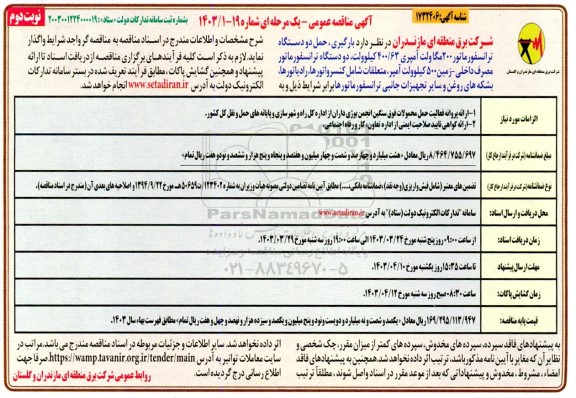 شناسه آگهی: ۱۷۳۲۴۰۶
آگهی مناقصه عمومی - یک مرحله ای شماره ۱۹-۱۴۰۳/۱
شماره ثبت سامانه تدارکات دولت «ستاد»: ۲۰۰۳۰۰۱۲۲۴۰۰۰۰۱۹
نوبت دوم
شرکت برق منطقه ای مازندران و گلستان
شرکت برق منطقه ای مازندران در نظر دارد بارگیری، حمل دو دستگاه
ترانسفورماتور ۲۰۰ مگا ولت آمپری ۴۰۰/۶۳ کیلوولت، دو دستگاه ترانسفورماتور
مصرف داخلی-زمین ۵۰۰ کیلوولت آمپر، متعلقات شامل کنسرواتورها، رادیاتورها،
بشکه های روغن و سایر تجهیزات جانبی ترانسفورماتورها برابر شرایط ذیل و به
شرح مشخصات و اطلاعات مندرج در اسناد مناقصه به مناقصه گر واجد شرایط واگذار
نماید. لازم به ذکر است کلیه فرآیندهای برگزاری مناقصه از دریافت اسناد تا ارائه
پیشنهاد و همچنین گشایش پاکات، مطابق فرآیند تعریف شده در بستر سامانه تدارکات
الکترونیک دولت به آدرس www.setadiran.ir انجام خواهد شد.
الزامات مورد نیاز
۱- ارائه پروانه فعالیت حمل محمولات فوق سنگین انجمن یوژی داران از اداره کل راه و شهرسازی و پایانه های حمل و نقل کل کشور.
۲- ارائه گواهی تایید صلاحیت ایمنی از اداره تعاون، کار و رفاه اجتماعی.
مبلغ ضمانتنامه (شرکت در فرآیند ارجاع کار)
۸/۴۶۴/۷۵۵/۶۹۷ ریال معادل «هشت میلیارد و چهارصد و شصت و چهار میلیون و هفتصد و پنجاه و پنج هزار و ششصد و نود و هفت ریال تمام»
نوع ضمانتنامه (شرکت در فرآیند ارجاع کار)
تضمین های معتبر (شامل فیش واریزی (وجه نقد)، ضمانتنامه بانکی،....) مطابق آیین نامه تضامین دولتی مصوبه هیات وزیران به شماره ۱۲۳۴۰۲/ت۵۰۶۵۹هـ مورخ ۱۳۹۴/۹/۲۲ و اصلاحیه های بعدی آن (مندرج در اسناد مناقصه).
محل دریافت و ارسال اسناد:
سامانه "تدارکات الکترونیک دولت (ستاد)" به آدرس www.setadiran.ir
زمان دریافت اسناد:
از ساعت ۰۹:۰۰ روز پنج شنبه مورخ ۱۴۰۳/۰۳/۲۴ الی ساعت ۱۹:۰۰ روز سه شنبه مورخ ۱۴۰۳/۰۳/۲۹.
مهلت ارسال پیشنهاد:
تا ساعت ۱۵:۳۵ روز یکشنبه مورخ ۱۴۰۳/۰۴/۱۰
زمان گشایش پاکات:
ساعت ۰۸:۳۰ صبح روز سه شنبه مورخ ۱۴۰۳/۰۴/۱۲.
قیمت پایه مناقصه:
۱۶۹/۲۹۵/۱۱۳/۹۴۷ ریال معادل «یکصد و شصت و نه میلیارد و دویست و نود و پنج میلیون و یکصد و سیزده هزار و نهصد و چهل و هفت ریال تمام» مطابق فهرست بهاء سال ۱۴۰۳.
ParsNamadData
۰۲۱-۸۸۳۴۹۶۷۰-۵
به پیشنهادهای فاقد سپرده، سپرده های مخدوش، سپرده های کمتر از میزان مقرر، چک شخصی و
نظایر آن که مغایر با آیین نامه مذکور باشد، ترتیب اثر داده نخواهد شد. همچنین به پیشنهادهای فاقد
امضاء، مشروط، مخدوش و پیشنهاداتی که بعد از موعد مقرر در اسناد واصل شوند، مطلقاً ترتیب
اثر داده نخواهد شد. سایر اطلاعات و جزئیات مربوطه در اسناد مناقصه مندرج می باشد. مراتب در
سایت معاملات توانیر به آدرس https://wamp.tavanir.org.ir/tender/main صرفا جهت
اطلاع رسانی درج گردیده است.
روابط عمومی شرکت برق منطقه ای مازندران و گلستان